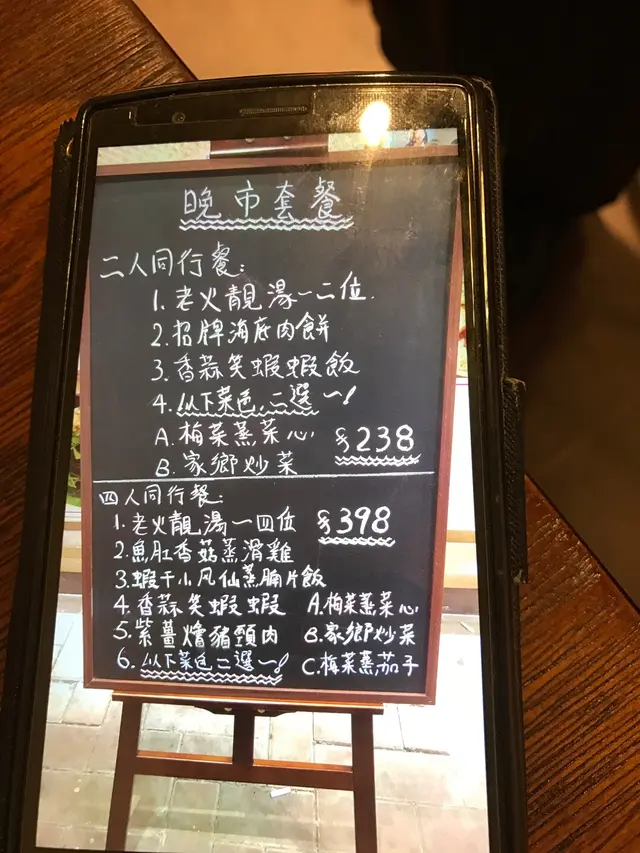 晚市套餐
二人同行餐:
1. 老火靚湯一二位.
2. 招牌海底肉餅
3. 香蒜笑蝦蝦飯
4. 以下菜色,二選一!
A. 梅菜蒸菜心 $238
B. 家鄉炒菜
四人同行餐:
1. 老火靚湯一四位 $398
2. 魚肚香菇蒸滑雞
3. 蝦干小鳳仙蒸腩片飯
4. 香蒜笑蝦蝦 A. 梅菜蒸菜心
5. 紫薑燴豬頸肉 B. 家鄉炒菜
6. 以下菜色二選一! C. 梅菜蒸茄子